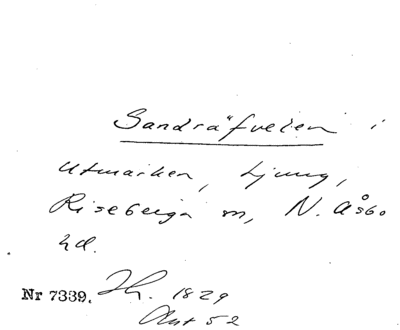 Sandräfveien i
Utmarken, Ljung,
Riseberga sn, N. Åsbo
hd.
Nr 7339. Jh. 1829
Akt 52